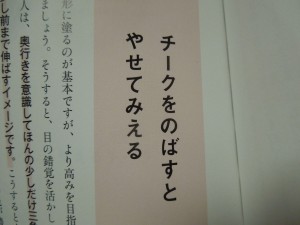 チークをのばすと
やせてみえる
形に塗るのが基本ですが、より高みを目指
しましょう。そうすると、目の錯覚を活かし
人は、奥行きを意識してほんの少しだけ三角
し前まで伸ばすイメージです。こうすると